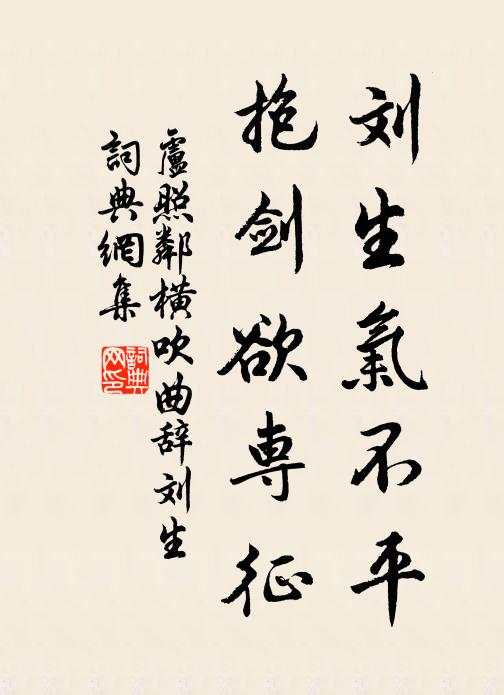 刘生氣不平
抱剑欲専征
盧照鄰横吹曲辞刘生
詞典網集
詞典网印